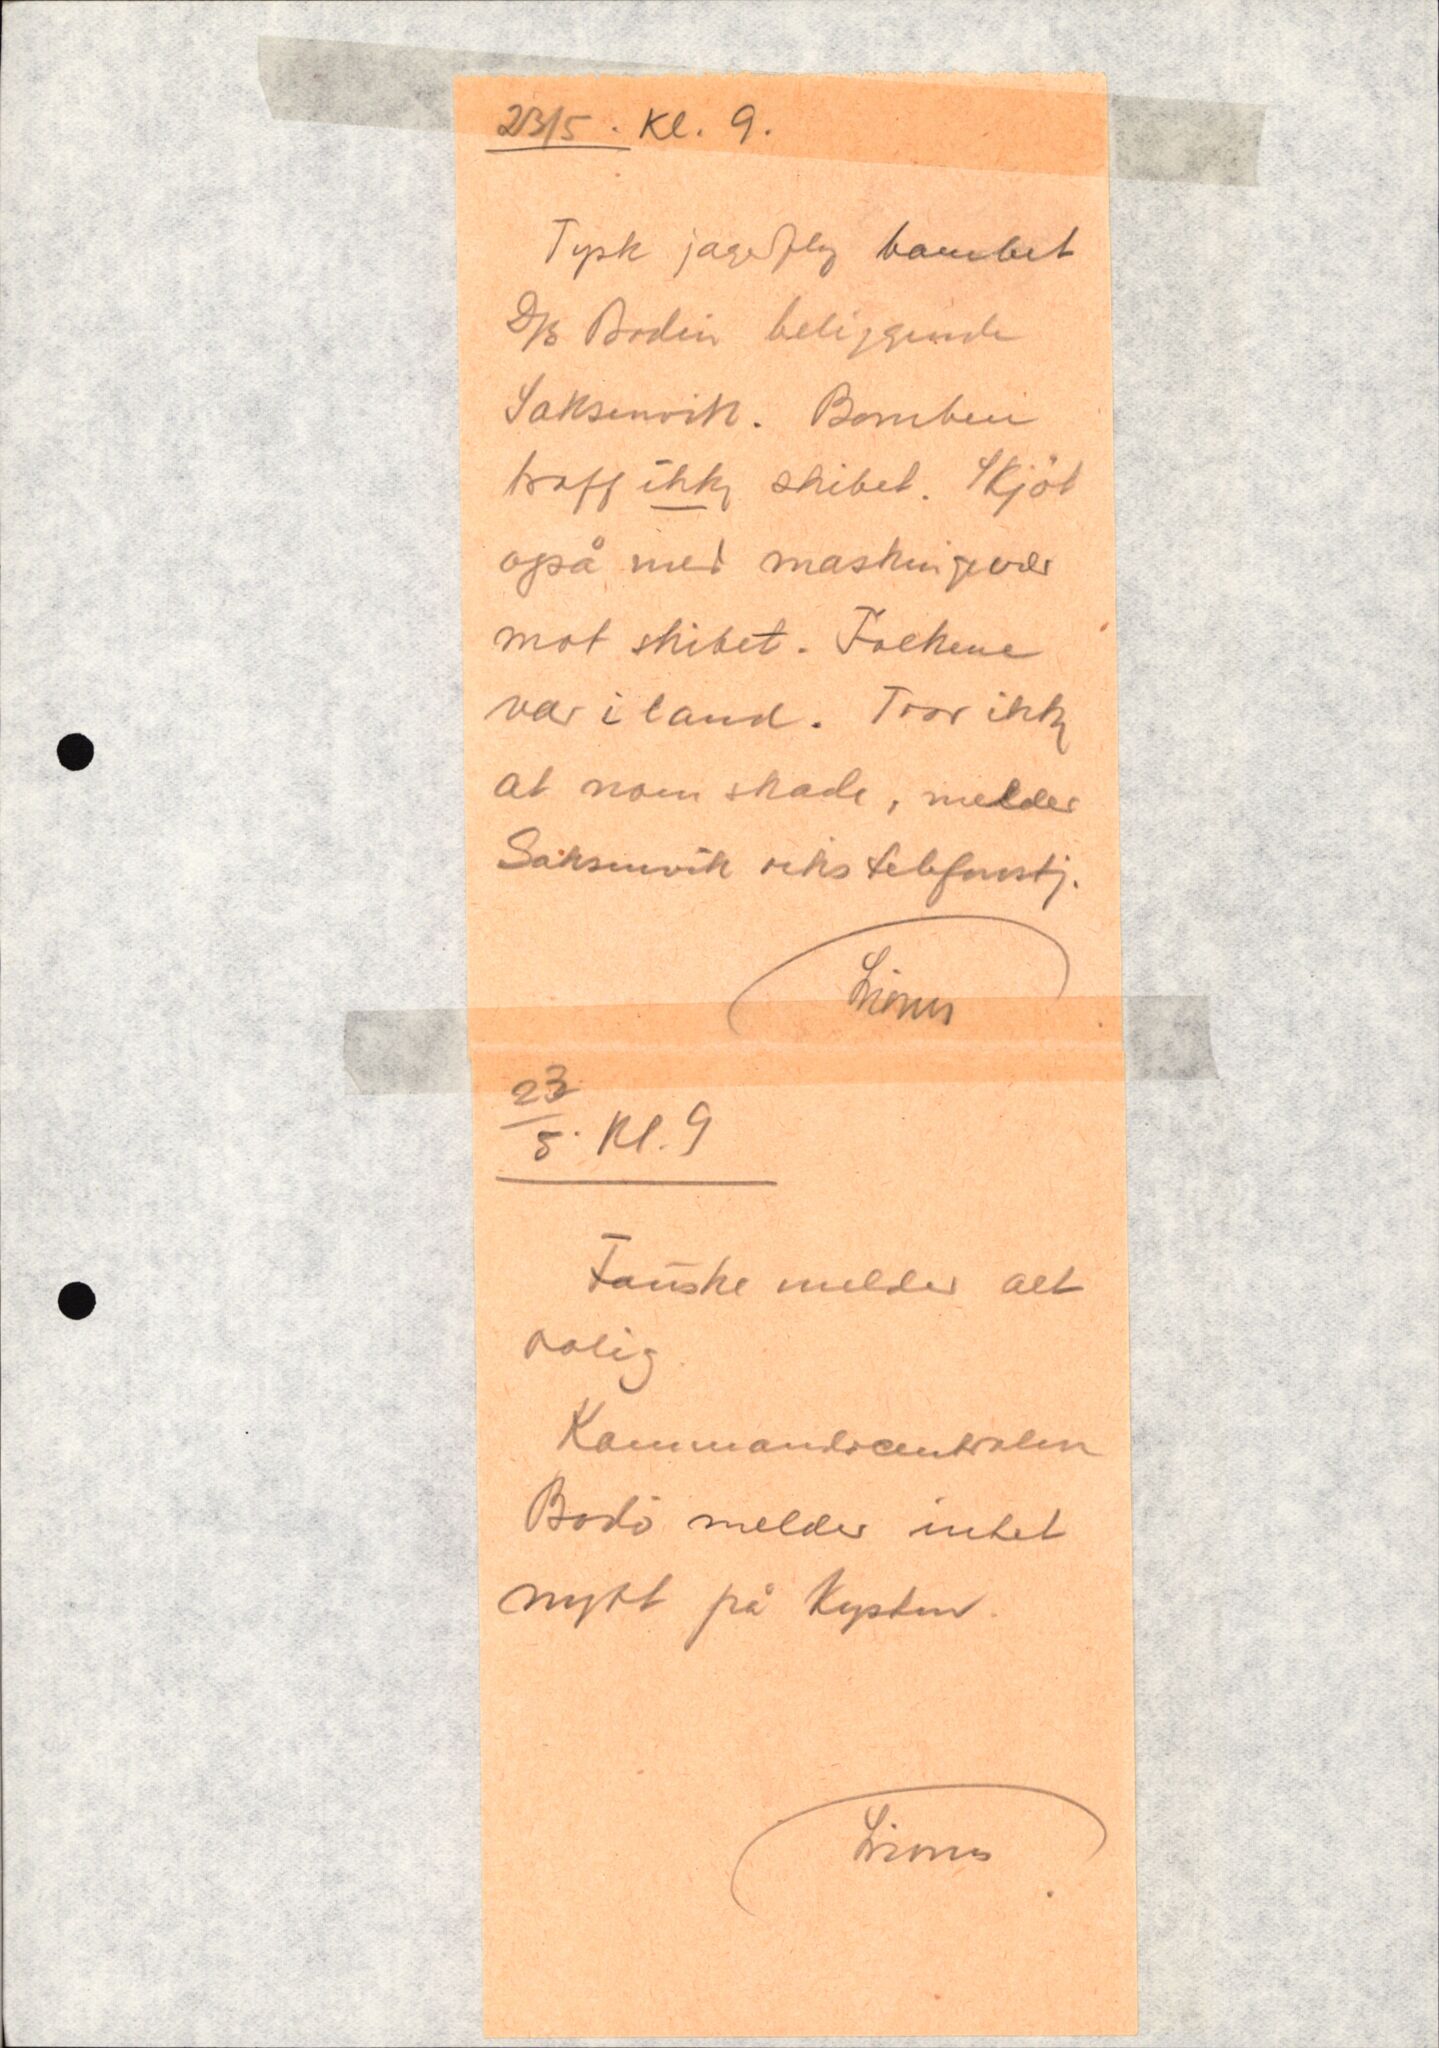 23/5. Kl. 9.
Tysk jagerfly bombet
D/S Bodin beliggende
Saksenvik. Bomben
traff ikke skibet. Skjöt
også med maskingevær
mot skibet. Folkene
var i land. Tror ikke
at noen skade, melder
Saksenvik rikstelefonstj.
23/5. Kl. 9
Fauske melder alt
rolig.
Kommandocentralen
Bodö melder intet
nytt på kysten.